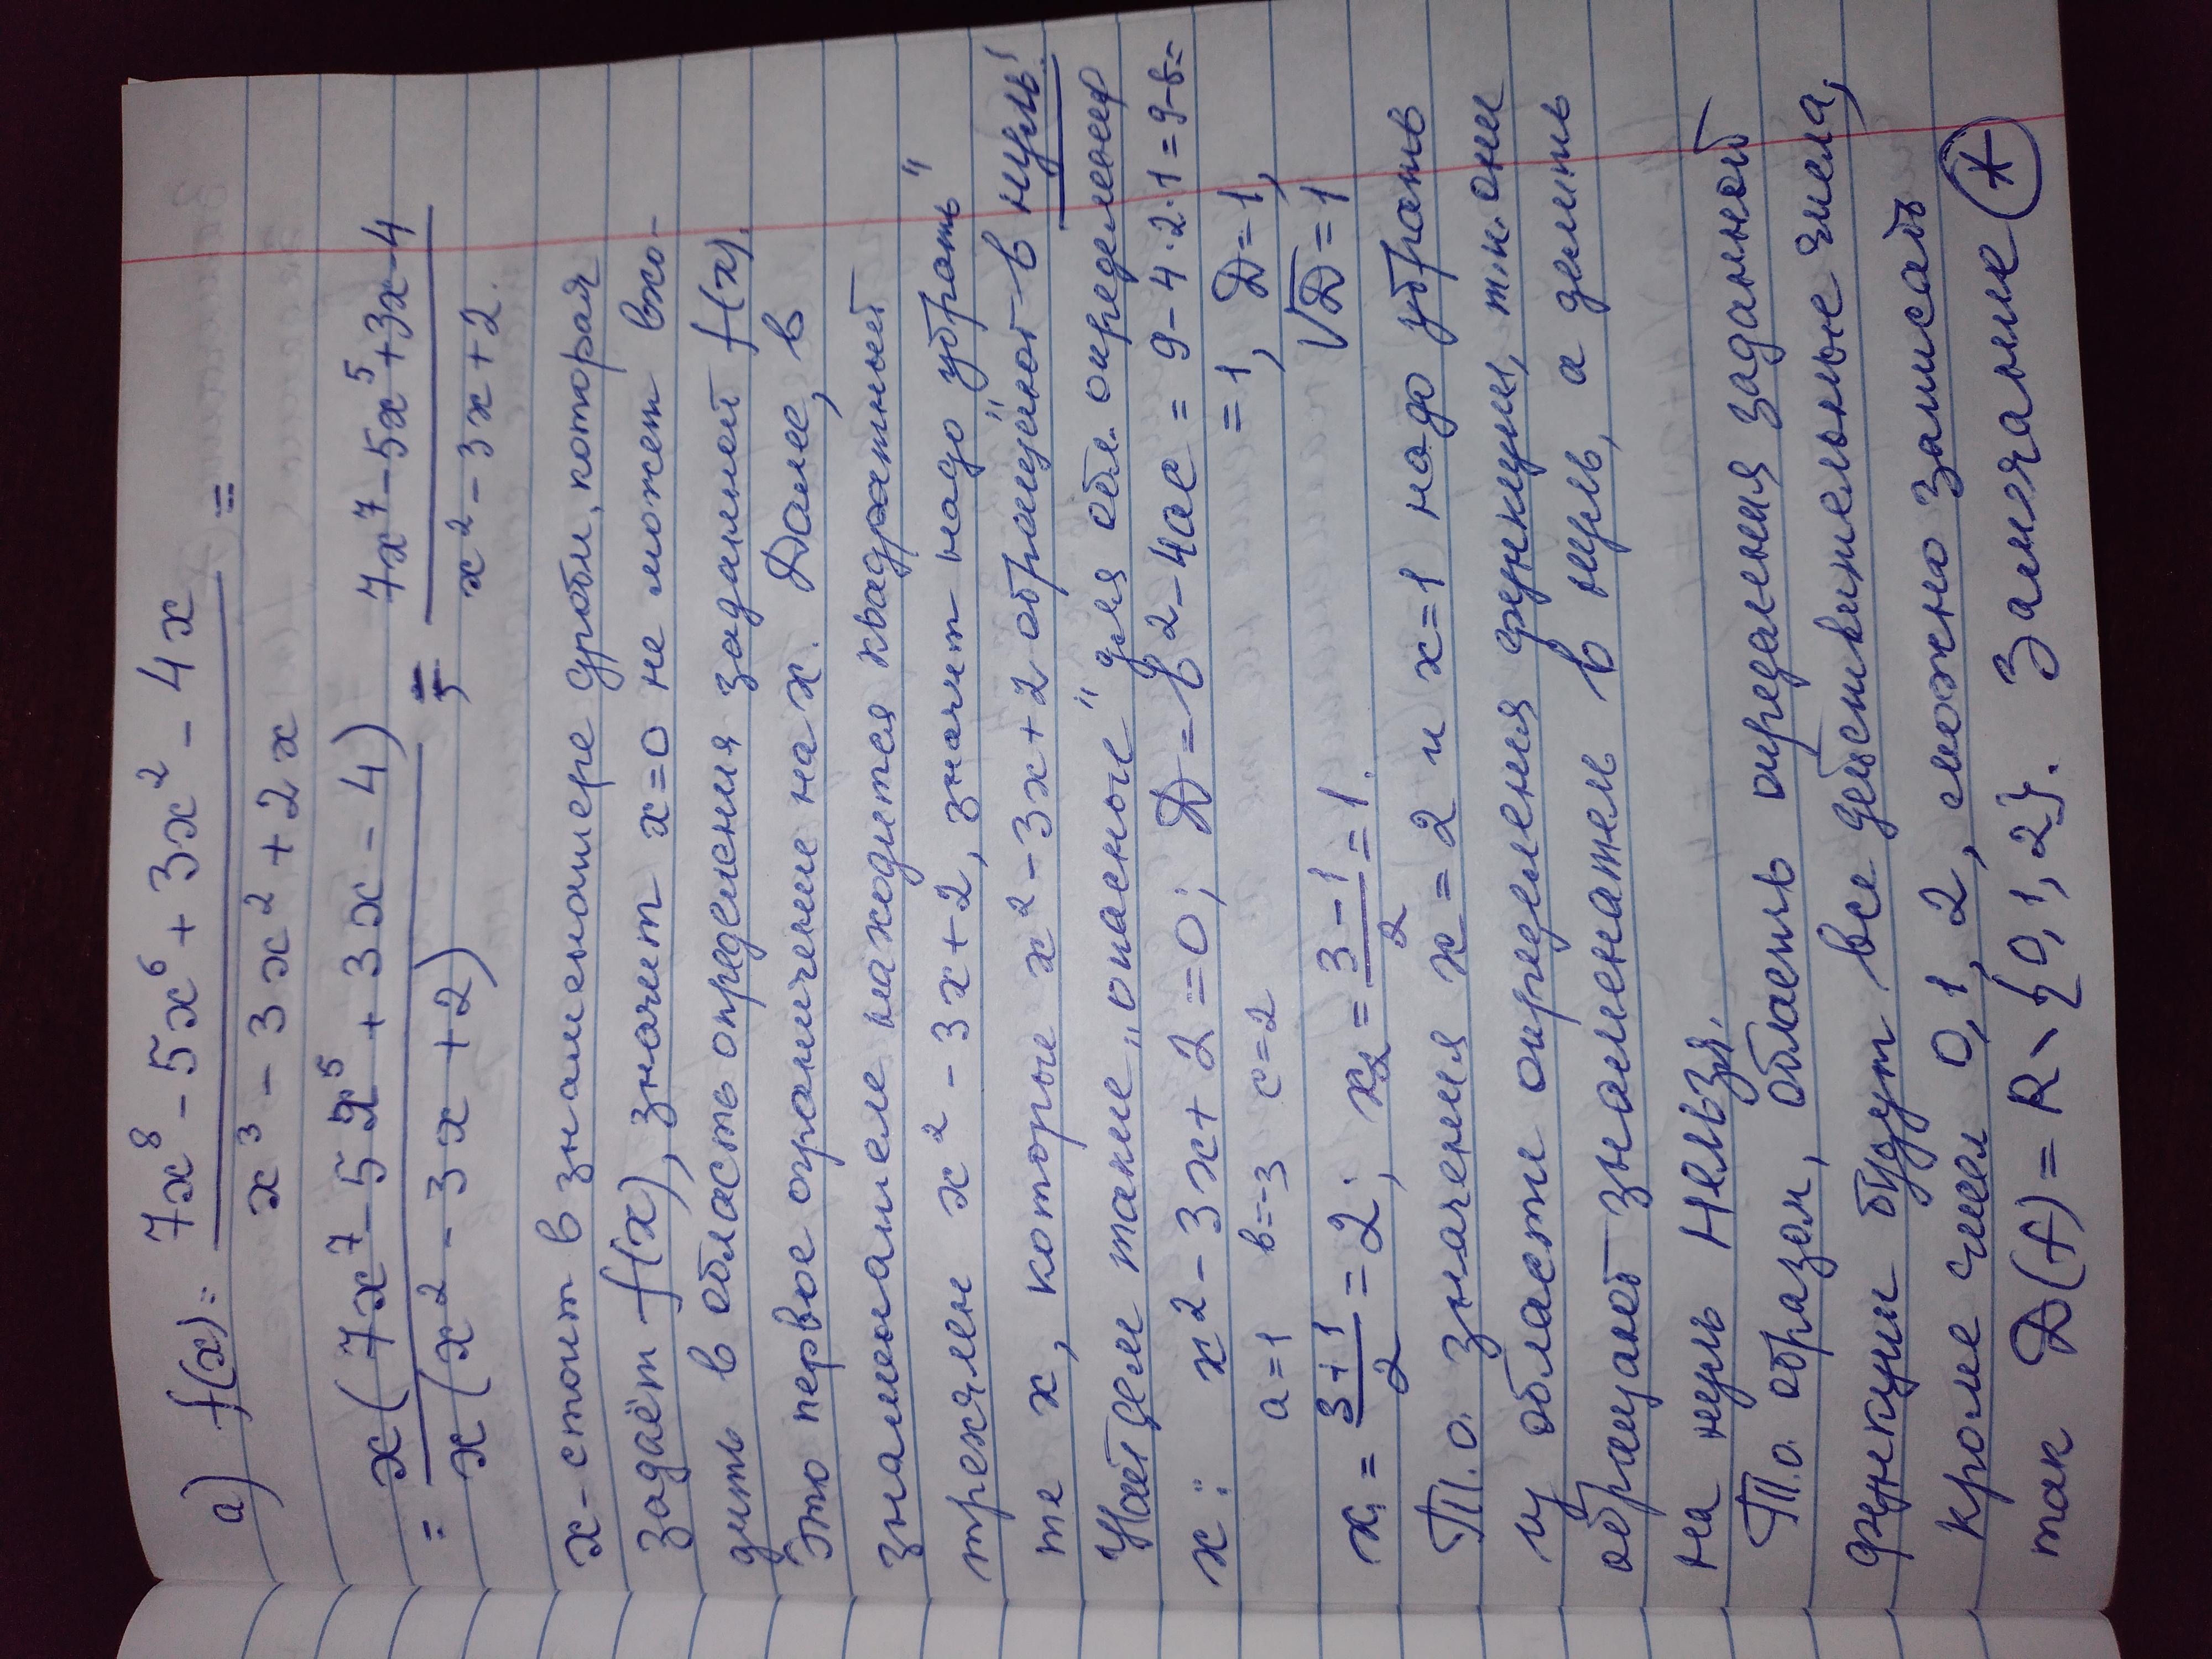 а) f(x) = 7x⁸ - 5x⁶ + 3x² - 4x / x³ - 3x² + 2x =
= x(7x⁷ - 5x⁵ + 3x - 4) / x(x² - 3x + 2) = 7x⁷ - 5x⁵ + 3x - 4 / x² - 3x + 2.
x - стоит в знаменателе дроби, которая
задаёт f(x), значит x=0 не может вхо-
дить в область определения заданной f(x).
Это первое ограничение на x. Далее, в
знаменателе находится квадратный
трехчлен x² - 3x + 2, значит надо "убрать"
те x, которые x² - 3x + 2 обращают в нуль!
Найдем такие "опасные" для обл. определения
x: x² - 3x + 2 = 0; D = b² - 4ac = 9 - 4·2·1 = 9-8=
a=1 b=-3 c=2 = 1, D=1,
√D = 1
x₁ = 3+1 / 2 = 2; x₂ = 3-1 / 2 = 1.
Т.о. значения x = 2 и x = 1 надо убрать
из области определения функции, т.к. они
обращают знаменатель в нуль, а делить
на нуль Нельзя.
Т.о. образом, область определения заданной
функции будут все действительные числа,
кроме чисел 0, 1, 2, можно записать
так D(f) = R \ {0, 1, 2}. Замечание *